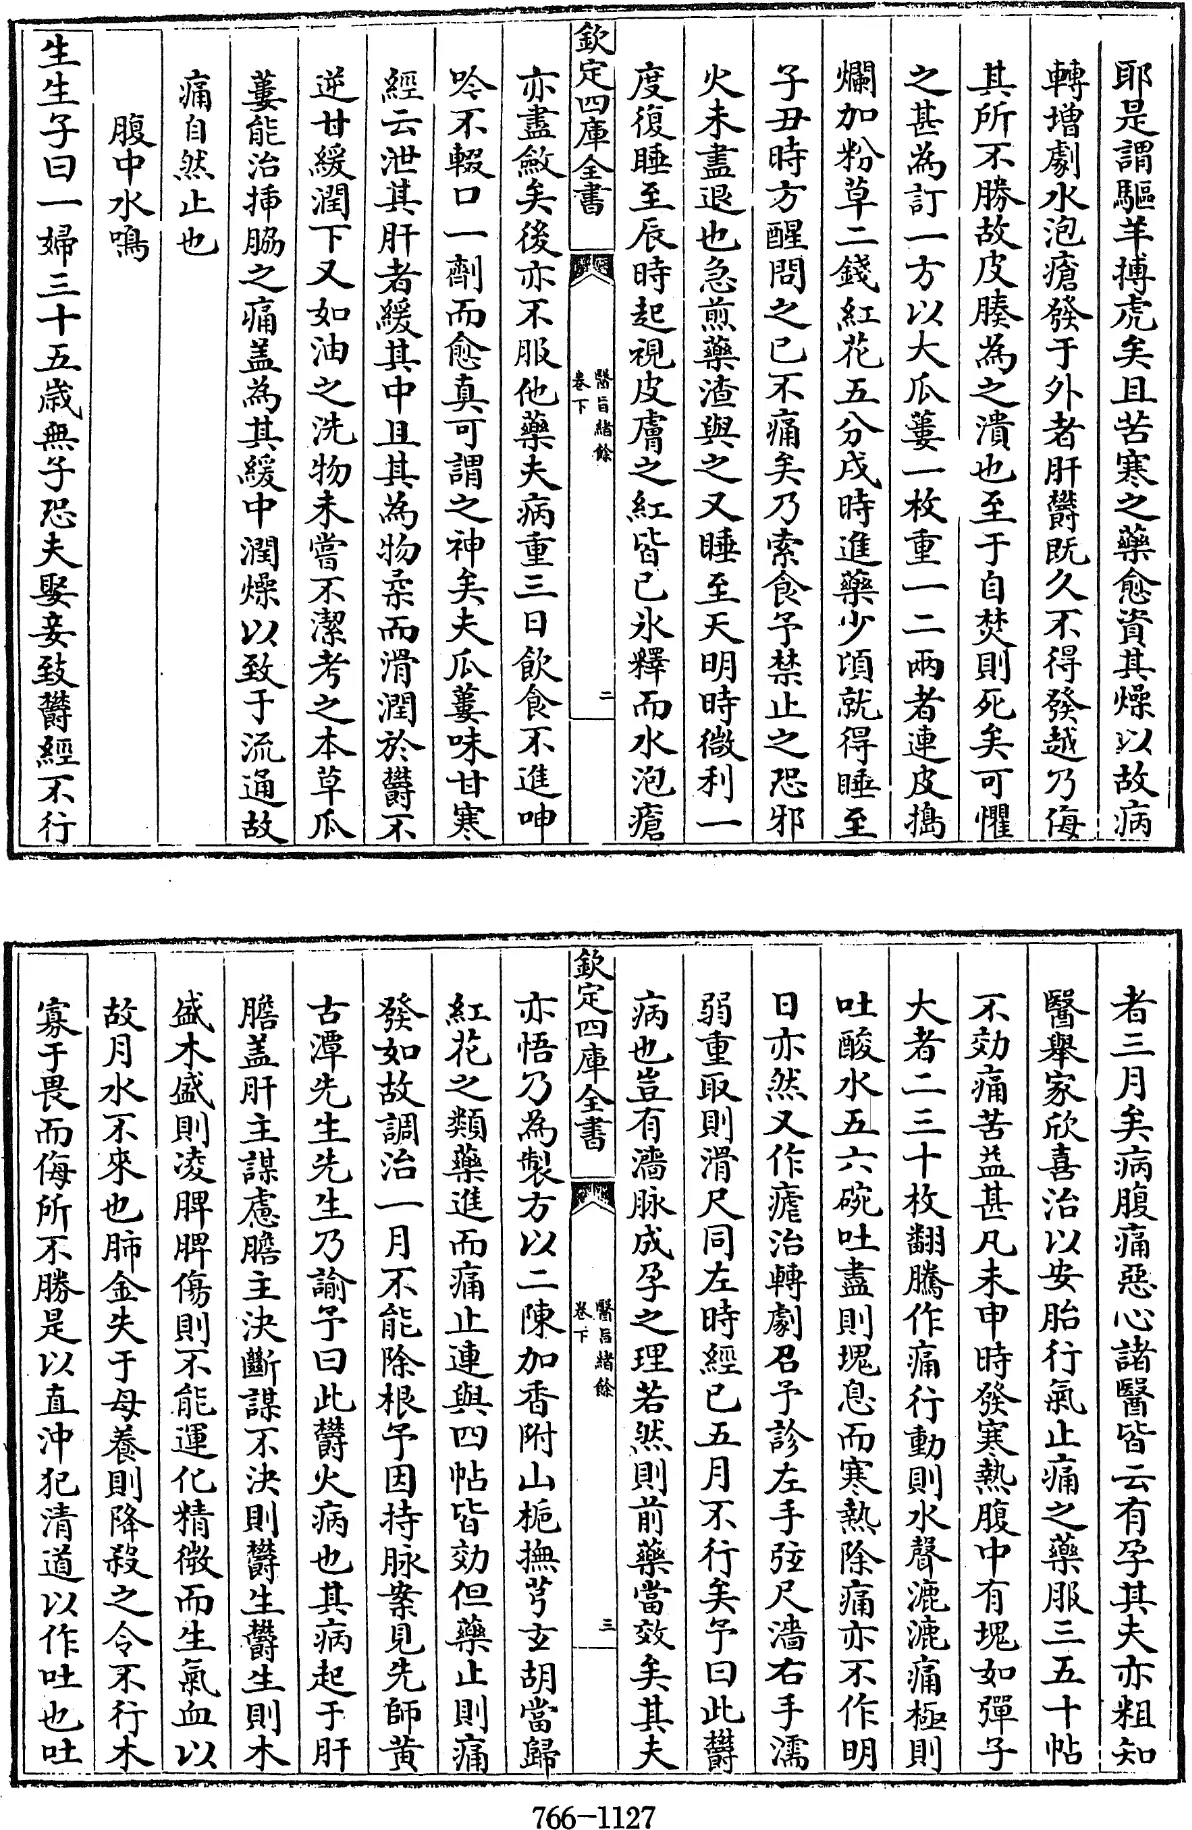 耶是謂驅羊搏虎矣且苦寒之藥愈資其燥以故病
轉增劇水泡瘡發于外者肝鬱既久不得發越乃侮
其所不勝故皮腠為之潰也至于自焚則死矣可懼
之甚為訂一方以大瓜蔞一枚重一二兩者連皮搗
爛加粉草二錢紅花五分戌時進藥少頃就得睡至
子丑時方醒問之已不痛矣乃索食予禁止之恐邪
火未盡退也急煎藥渣與之又睡至天明時微利一
度復睡至辰時起視皮膚之紅皆已氷釋而水泡瘡
欽定四庫全書
醫旨緒餘
卷下
二
亦盡斂矣後亦不服他藥夫病重三日飲食不進呻
吟不輟口一劑而愈真可謂之神矣夫瓜蔞味甘寒
經云泄其肝者緩其中且其為物柔而滑潤於鬱不
逆甘緩潤下又如油之洗物未嘗不潔考之本草瓜
蔞能治揷脇之痛盖為其緩中潤燥以致于流通故
痛自然止也
腹中水鳴
生生子曰一婦三十五歲無子恐夫娶妾致鬱經不行
者三月矣病腹痛惡心諸醫皆云有孕其夫亦粗知
醫舉家欣喜治以安胎行氣止痛之藥服三五十帖
不効痛苦益甚凡未申時發寒熱腹中有塊如彈子
大者二三十枚翻騰作痛行動則水聲漉漉痛極則
吐酸水五六碗吐盡則塊息而寒熱除痛亦不作明
日亦然又作瘧治轉劇召予診左手弦尺濇右手濡
弱重取則滑尺同左時經已五月不行矣予曰此鬱
病也豈有濇脉成孕之理若然則前藥當效矣其夫
欽定四庫全書
醫旨緒餘
卷下
三
亦悟乃為製方以二陳加香附山梔撫芎玄胡當歸
紅花之類藥進而痛止連與四帖皆効但藥止則痛
發如故調治一月不能除根予因持脉案見先師黄
古潭先生先生乃諭予曰此鬱火病也其病起于肝
膽盖肝主謀慮膽主決斷謀不決則鬱生鬱生則木
盛木盛則凌脾脾傷則不能運化精微而生氣血以
故月水不來也肺金失于母養則降殺之令不行木
寡于畏而侮所不勝是以直沖犯清道以作吐也吐
766-1127